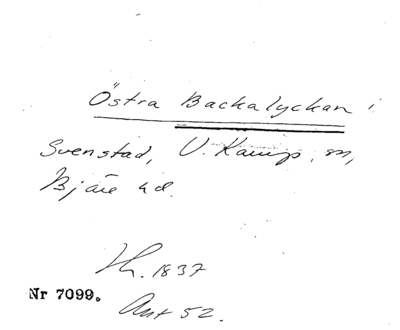 Östra Backalyckan i
Svenstad, V. Karup, sn,
Bjäre hd.
Lh. 1837
Nr 7099.
Ant 52.